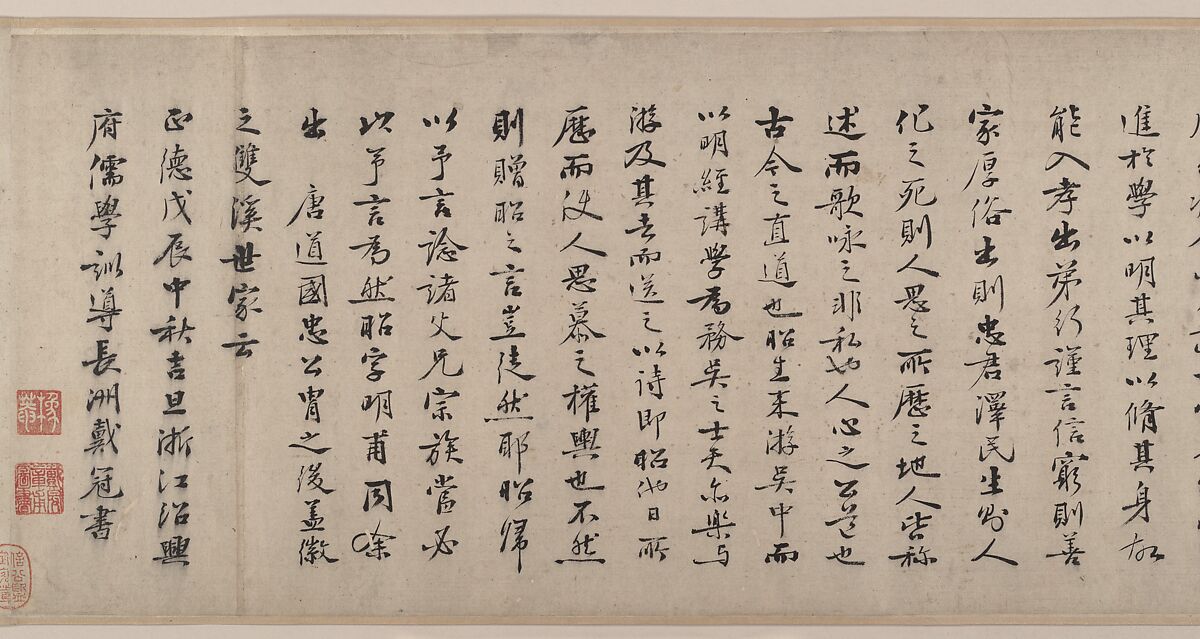 進於學以明其理以脩其身故
能入孝出弟行謹言信窮則善
家厚俗出則忠君澤民生則人
化之死則人思之所歷之地人皆称
述而歌咏之非私也人心之公也
古今之直道也昭生来游吴中而
以明經講學為務吴之士夫亦樂与
游及其去而送之以詩即昭他日所
歷而使人思慕之權輿也不然
則贈昭之言豈徒然耶昭歸
以予言諗諸父兄宗族當必
以予言為然昭字明甫同余
出 唐道國忠公胄之後盖徽
之雙溪世家云
正德戊辰中秋吉旦浙江紹興
府儒學訓導長洲戴冠書